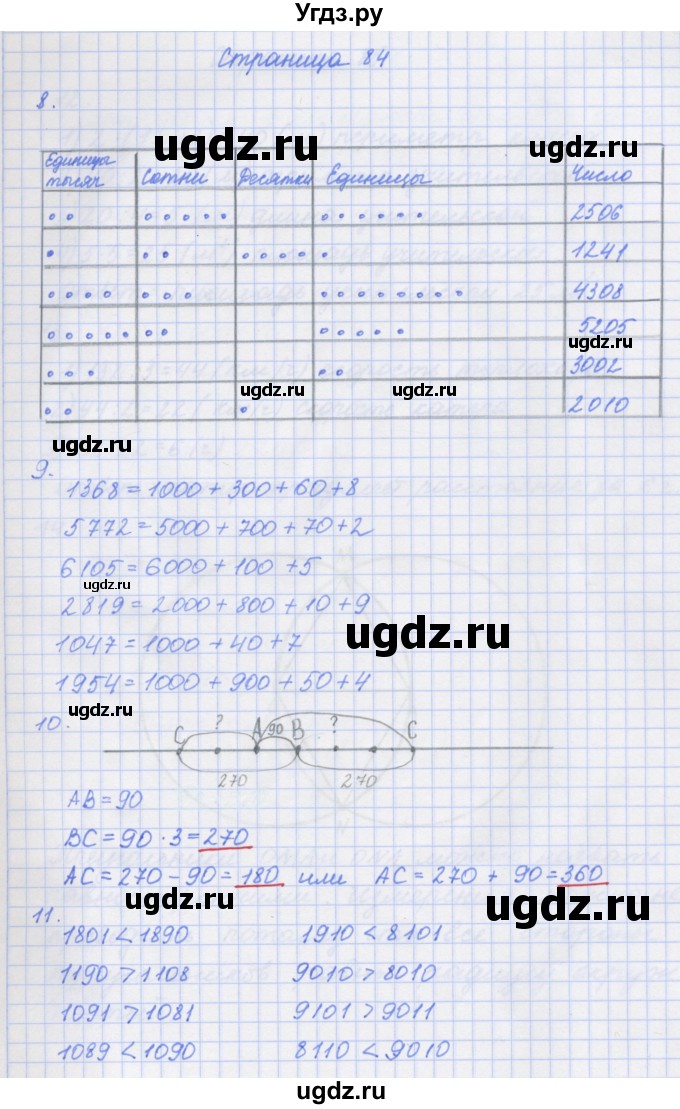 Угдз.ру
Страница 84
8.
Единицы тысяч Сотни Десятки Единицы Число
2506
1241
4308
5205
3002
2010
9.
1368 = 1000 + 300 + 60 + 8
5772 = 5000 + 700 + 70 + 2
6105 = 6000 + 100 + 5
2819 = 2000 + 800 + 10 + 9
1047 = 1000 + 40 + 7
1954 = 1000 + 900 + 50 + 4
10.
C ? A 90 B ? C
270 270
AB = 90
BC = 90 · 3 = 270
AC = 270 - 90 = 180 или AC = 270 + 90 = 360
11.
1801 < 1890 1910 < 8101
1190 > 1108 9010 > 8010
1091 > 1081 9101 > 9011
1089 < 1090 8110 < 9010
ugdz.ru
ugdz.ru
ugdz.ru
ugdz.ru
ugdz.ru
ugdz.ru
ugdz.ru
ugdz.ru
ugdz.ru
ugdz.ru
ugdz.ru
ugdz.ru
ugdz.ru
ugdz.ru